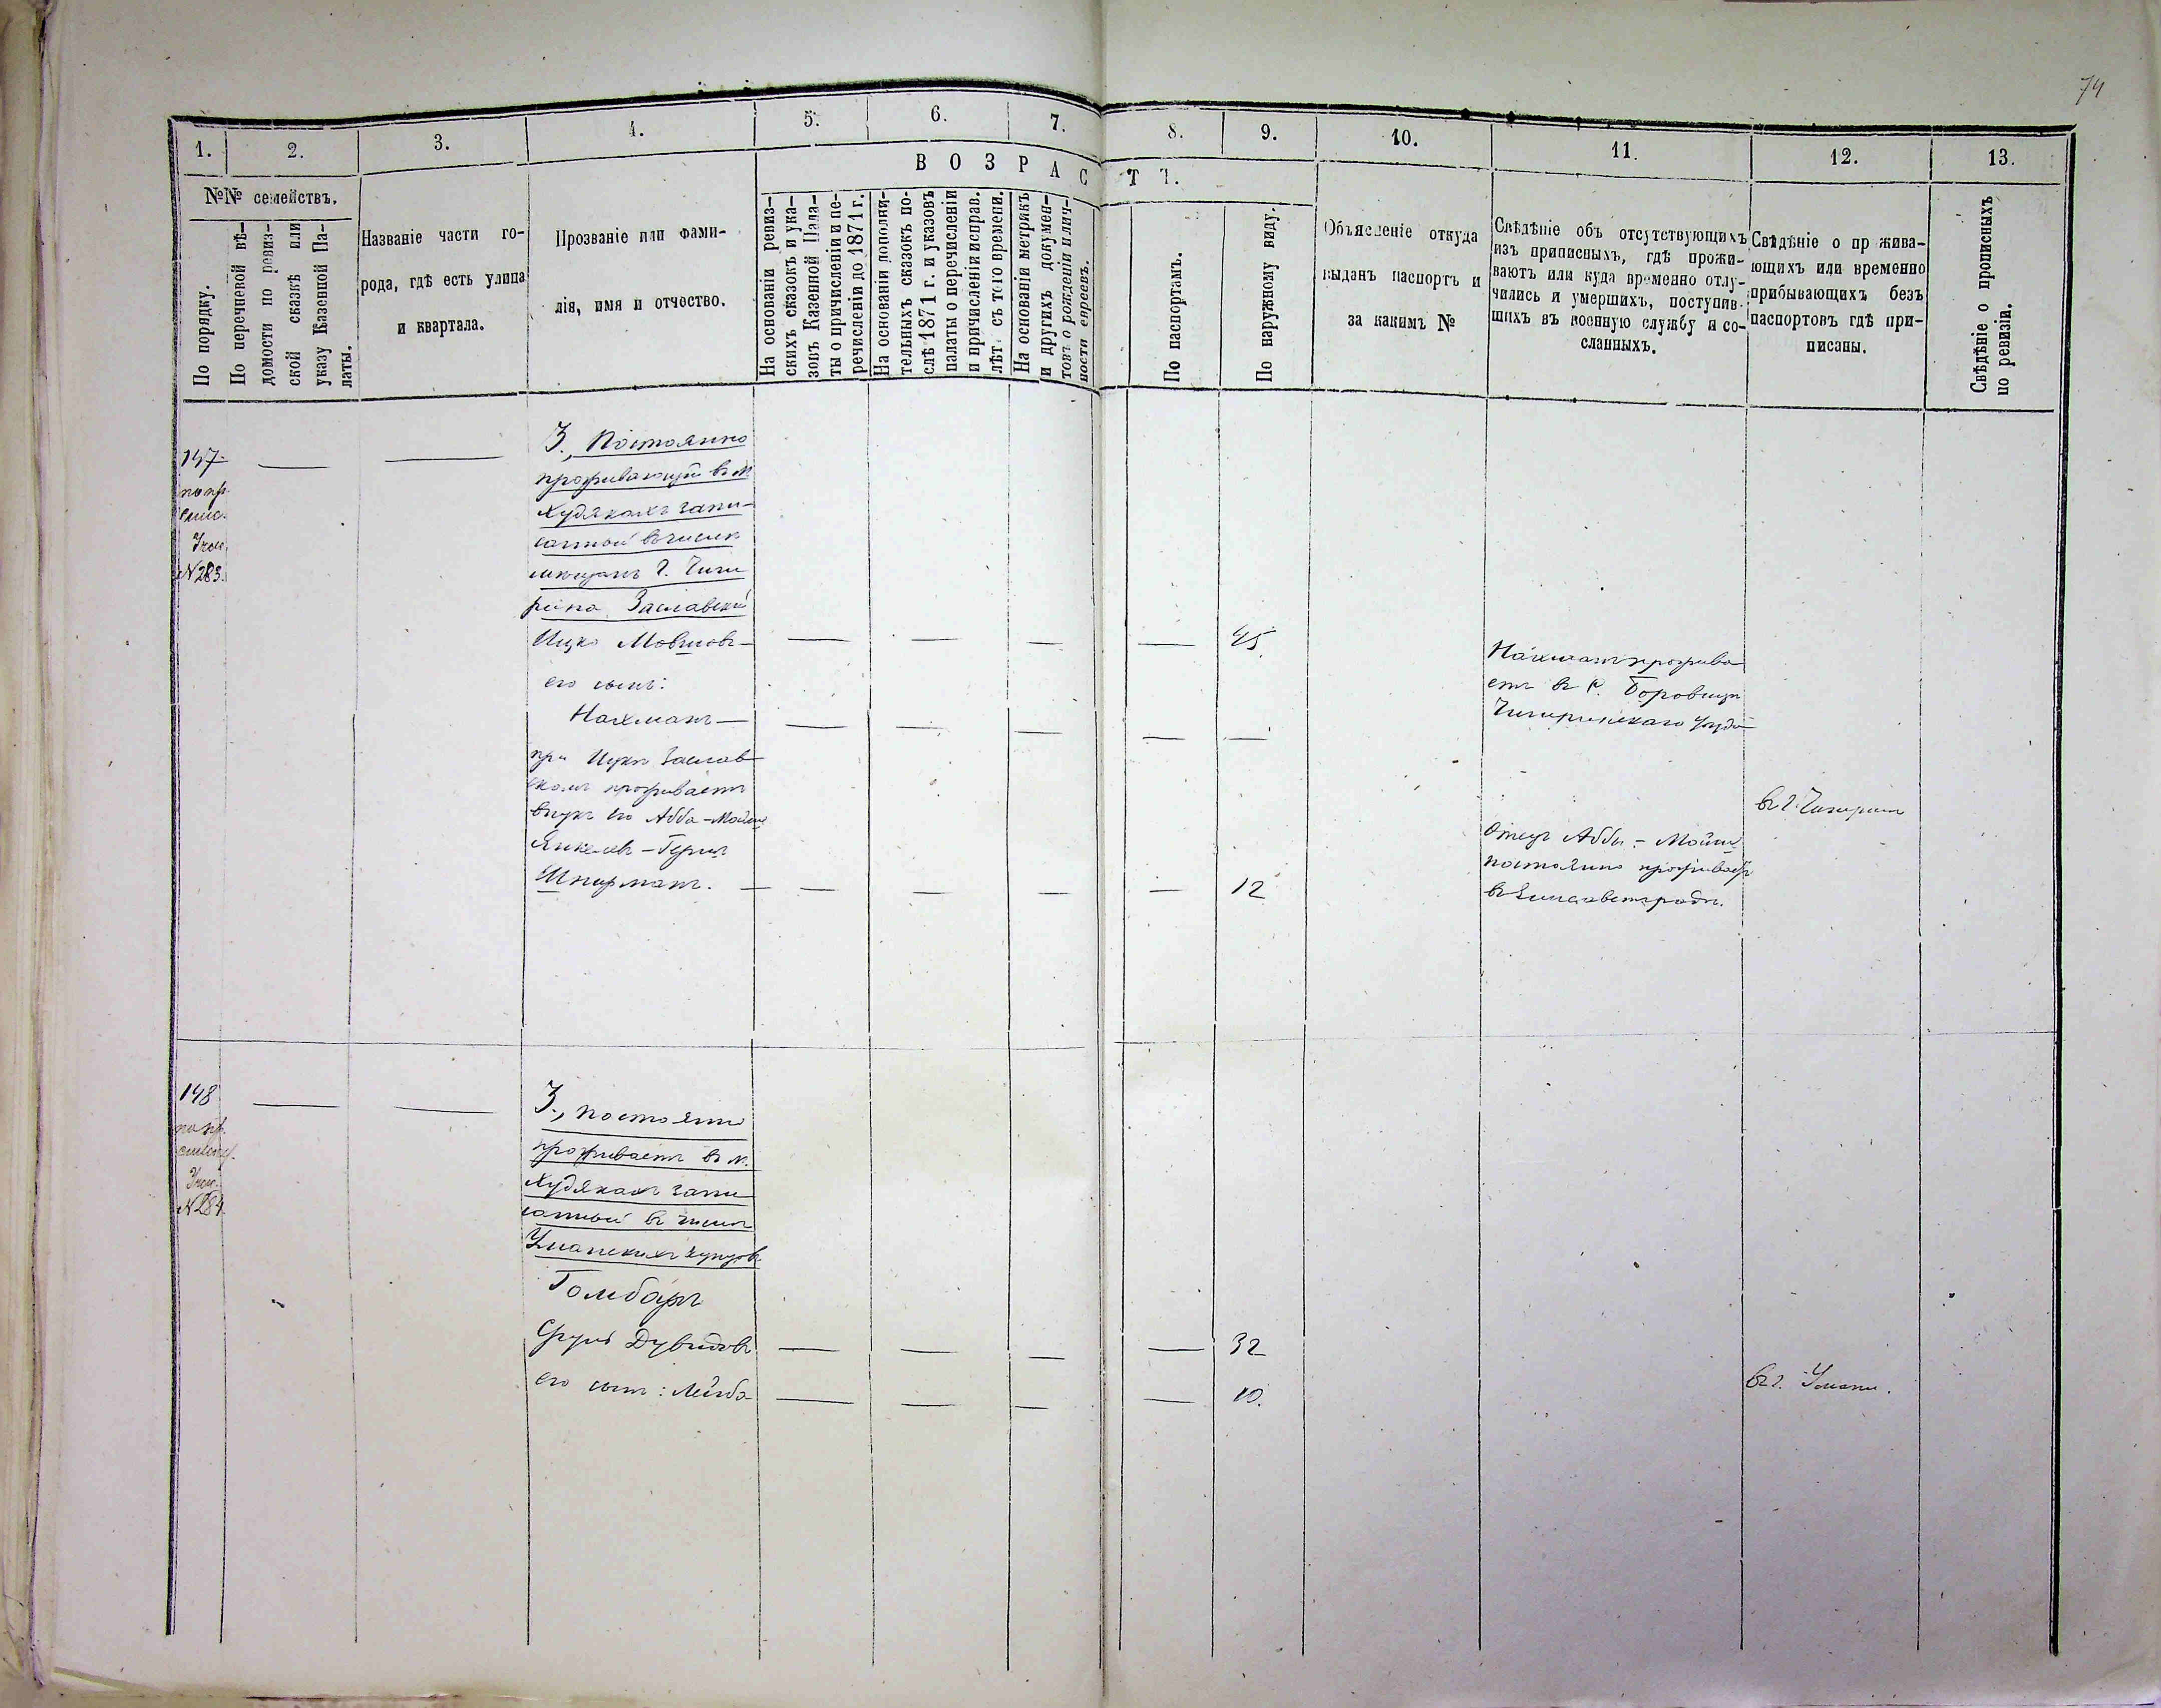 74
1. 2. 3. 4. 5. 6. 7. 8. 9. 10. 11. 12. 13.
№№ семействъ.
По порядку.
По перечневой вѣ-
домости по ревиз-
ской сказкѣ или
указу Казенной Па-
латы.
Названіе части го-
рода, гдѣ есть улица
и квартала.
Прозваніе или фами-
лія, имя и отчество.
ВОЗРАСТЪ.
На основаніи ревиз-
скихъ сказокъ и ука-
зовъ Казенной Пала-
ты о причисленіи и пе-
речисленіи до 1871 г.
На основаніи дополни-
тельныхъ сказокъ по-
слѣ 1871 г. и указовъ
палаты о перечисленіи
и причисленіи исправ.
лѣт. съ того времени.
На основаніи метрикъ
и другихъ докумен-
товъ о рожденіи и лич-
ности евреевъ.
По паспортамъ.
По наружному виду.
Объясненіе откуда
выданъ паспортъ и
за какимъ №
Свѣдѣніе объ отсутствующихъ
изъ приписныхъ, гдѣ прожи-
ваютъ или куда временно отлу-
чились и умершихъ, поступив-
шихъ въ военную службу и со-
сланныхъ.
Свѣдѣніе о прожива-
ющихъ или временно
прибывающихъ безъ
паспортовъ гдѣ при-
писаны.
Свѣдѣніе о прописныхъ
по ревизіи.
147
по пр.
спис.
N 283.
3., Постоянно
проживающій въ м.
Худякахъ запи-
санный въ числѣ
мѣщанъ г. Чиги
рина Заславскій
Ицко Мовшовъ — 45
его сынъ:
Нахманъ —
Нахманъ прожива
етъ въ с. Боровицѣ
Чигиринскаго уѣзда
при Ицкѣ Заслав
скомъ проживаетъ
внукъ его Абба-Мойше
Янкелевъ-Герш
Шпирманъ. — 12
въ г. Чигиринѣ
Отецъ Аббы-Мойши
постоянно проживаетъ
въ Елисаветградѣ.
148
по пр.
N 284.
3., постоянно
проживаетъ въ м.
Худякахъ запи
санный въ числѣ
Уманскихъ купцовъ
Гомбаръ
Сруль Дувидовъ — 32
его сынъ: Лейба — 10.
въ г. Умани.